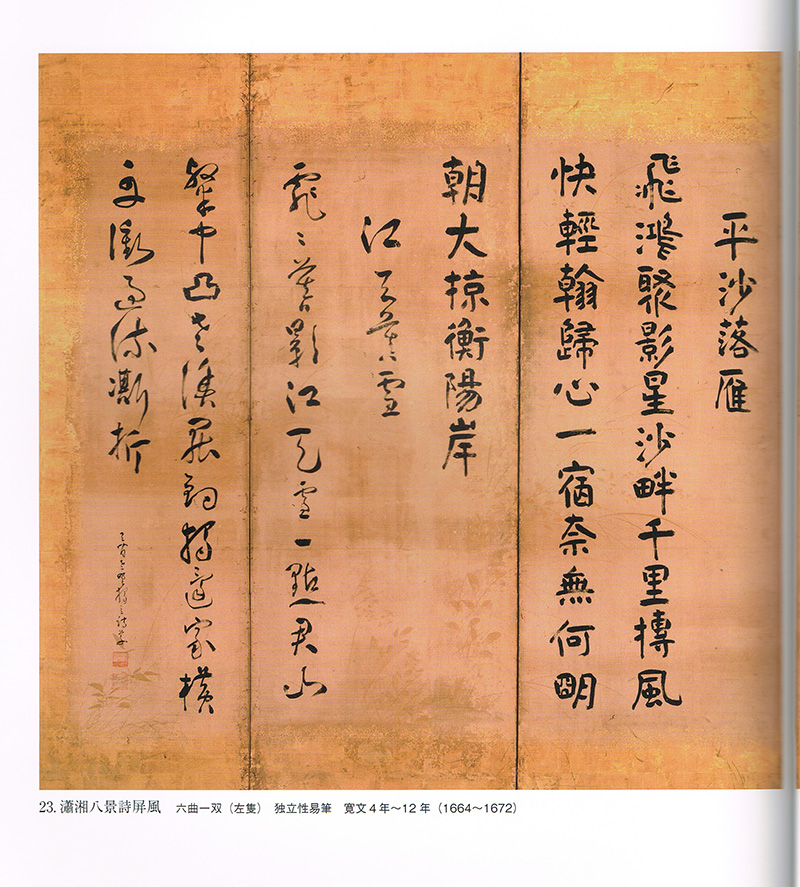 平沙落雁
飛鴻聚影星沙畔千里摶風
快輕翰歸心一宿奈無何明
朝大掠衡陽岸
江天暮雪
霏〻暮影江天雪一點君山
擎中凸老漁罷釣獨還家橫
流澌折
23. 瀟湘八景詩屏風　六曲一双（左隻）　独立性易筆　寛文4年～12年（1664～1672）